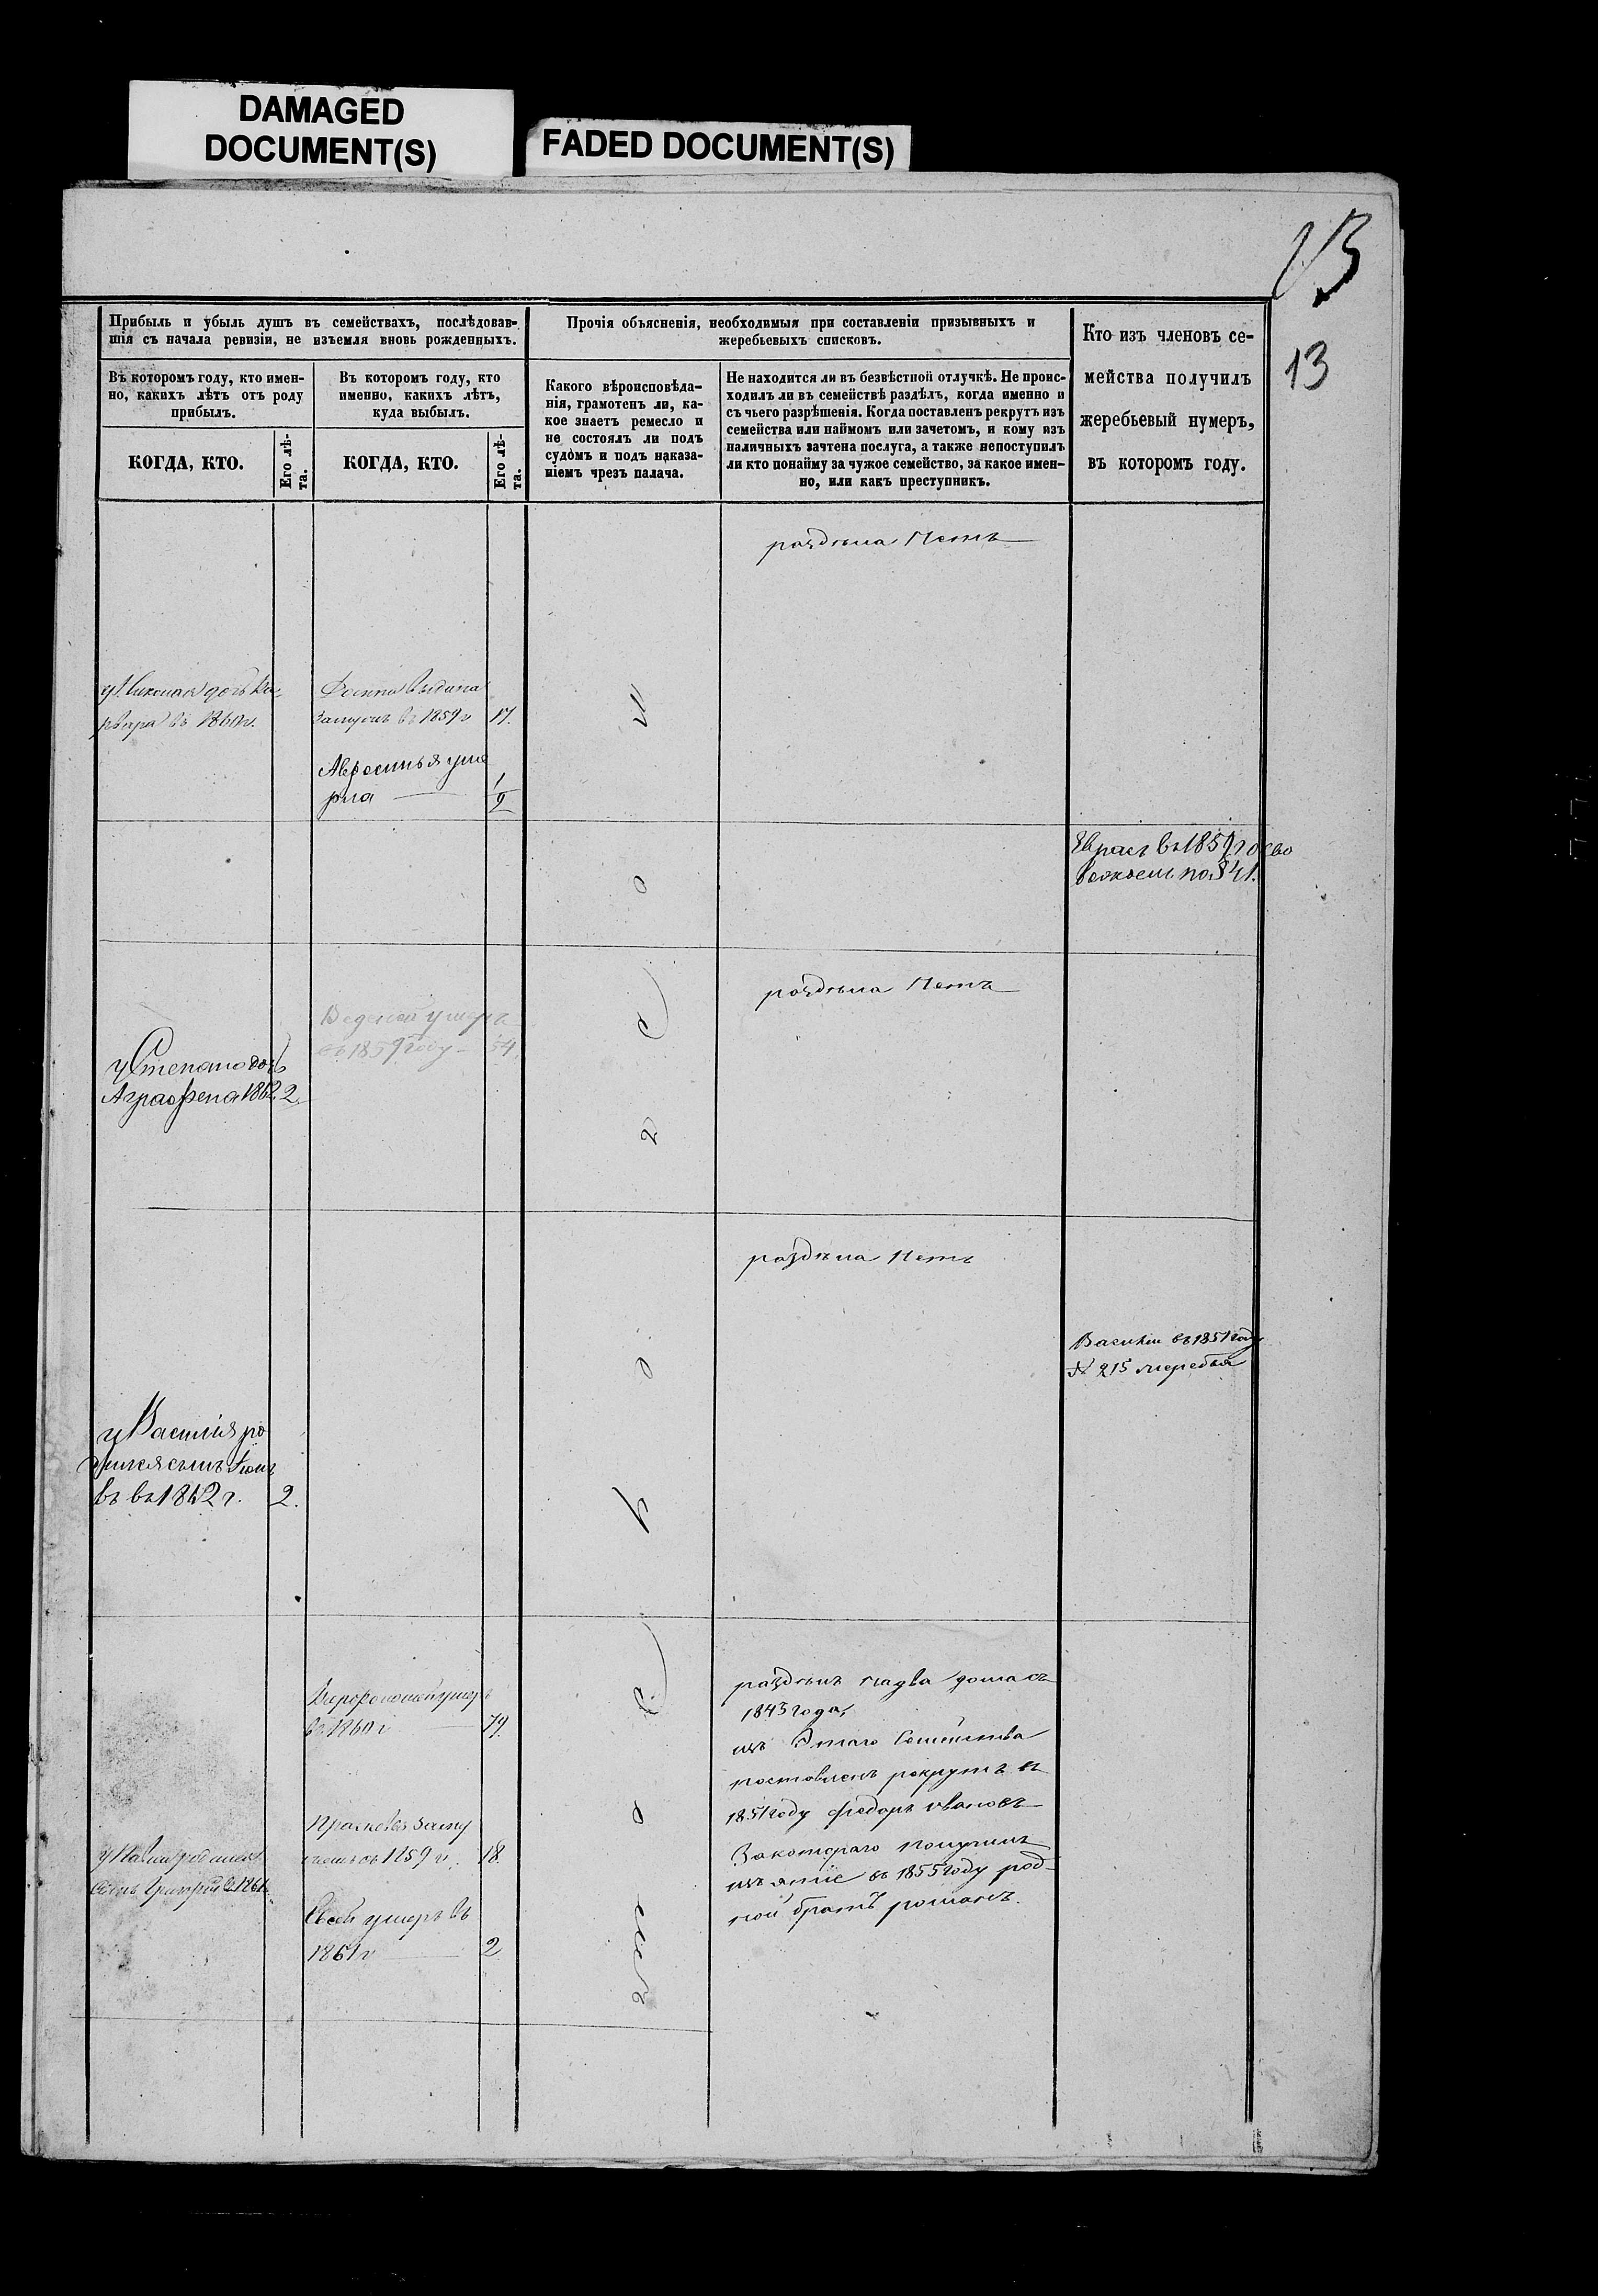 DAMAGED
DOCUMENT(S)
FADED DOCUMENT(S)
13
13
Прибыль и убыль душъ въ семействахъ, послѣдовав-
шія съ начала ревизіи, не изъемля вновь рожденныхъ.
Прочія объясненія, необходимыя при составленіи призывныхъ и
жеребьевыхъ списковъ.
Кто изъ членовъ се-
мейства получилъ
жеребьевый нумеръ,
въ которомъ году.
Въ которомъ году, кто имен-
но, какихъ лѣтъ отъ роду
прибылъ.
Въ которомъ году, кто
именно, какихъ лѣтъ,
куда выбылъ.
Какого вѣроисповѣда-
нія, грамотенъ ли, ка-
кое знаетъ ремесло и
не состоялъ ли подъ
судомъ и подъ наказа-
ніемъ чрезъ палача.
Не находится ли въ безвѣстной отлучкѣ. Не проис-
ходилъ ли въ семействѣ раздѣлъ, когда именно и
съ чьего разрѣшенія. Когда поставленъ рекрутъ изъ
семейства или наймомъ или зачетомъ, и кому изъ
наличныхъ зачтена послуга, а также непоступилъ
ли кто понайму за чужое семейство, за какое имен-
но, или какъ преступникъ.
КОГДА, КТО.
Его лѣ-
та.
КОГДА, КТО.
Его лѣ-
та.
раздѣла Нетъ
у Николая дочь Ва-
рвара въ 1860 г.
выдана
замужъ въ 1859 г 17.
Авросинья уме
рла 1/2
въ 1859
по 841.
раздѣла Нетъ
умеръ
въ 1859 году 54
у Степана дочь
Аграфена 1862. 2.
раздѣла Нетъ
Василій въ 1851 году
№ 215 жеребья
у Василія ро
дился сынъ
въ 1862 г. 2.
умеръ
въ 1860 г 79.
раздѣлъ на два дома съ
1843 года,
изъ Этаго Семейства
поставленъ рекрутъ въ
1851 году Федоръ Ивановъ
За котораго получилъ
изъятіе въ 1855 году род-
ной братъ романъ.
замужъ
въ 1859 г. 18.
родился
сынъ Григорій въ 1861
умеръ въ
1861 г 2